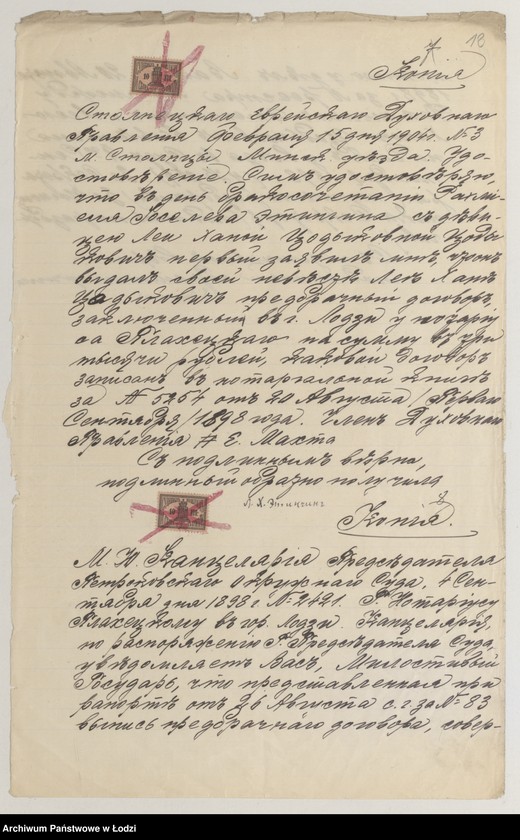 7 18
Копія
Столпецкаго Еврейскаго Духовнаго
Правленія Февраля 15 дня 1906 г. № 3
м. Столпцы Минск. уѣзда. Удо-
стовѣреніе Симъ удостовѣряю,
что въ день бракосочетанія Рахмі-
еля Іоселева Этингина съ дѣви-
цею Леи Ханой Цодыковной Цоды
ковичъ первый заявилъ мнѣ, что онъ
выдалъ своей невѣстѣ Леѣ Ханѣ
Цадыковичъ предбрачный договоръ,
заключенный въ г. Лодзи у нотарiу
са Плахецкаго на сумму въ три
тысячи рублей, каковой договоръ
записанъ въ нотаріальной книгѣ
за № 5257 отъ 20 Августа /Перваго
Сентября/ 1898 года. Членъ Духовнаго
Правленія Е. Махта
Съ подлиннымъ вѣрно,
подлинный обратно получила
Л. Х. Этингинъ
7
Копія.
М. Ю. Канцелярія Предсѣдателя
Петроковскаго Окружнаго Суда. 4 Сен-
тября дня 1898 г. № 2421. Г. Нотаріусу
Плахецкому въ гор. Лодзи. Канцелярія,
по распоряженію Г. Предсѣдателя Суда,
увѣдомляетъ Васъ, Милостивый
Государь, что представленная при
рапортѣ отъ 26 Августа с. г. за № 83
выпись предбрачнаго договора, совер-
Archiwum Państwowe w Łodzi